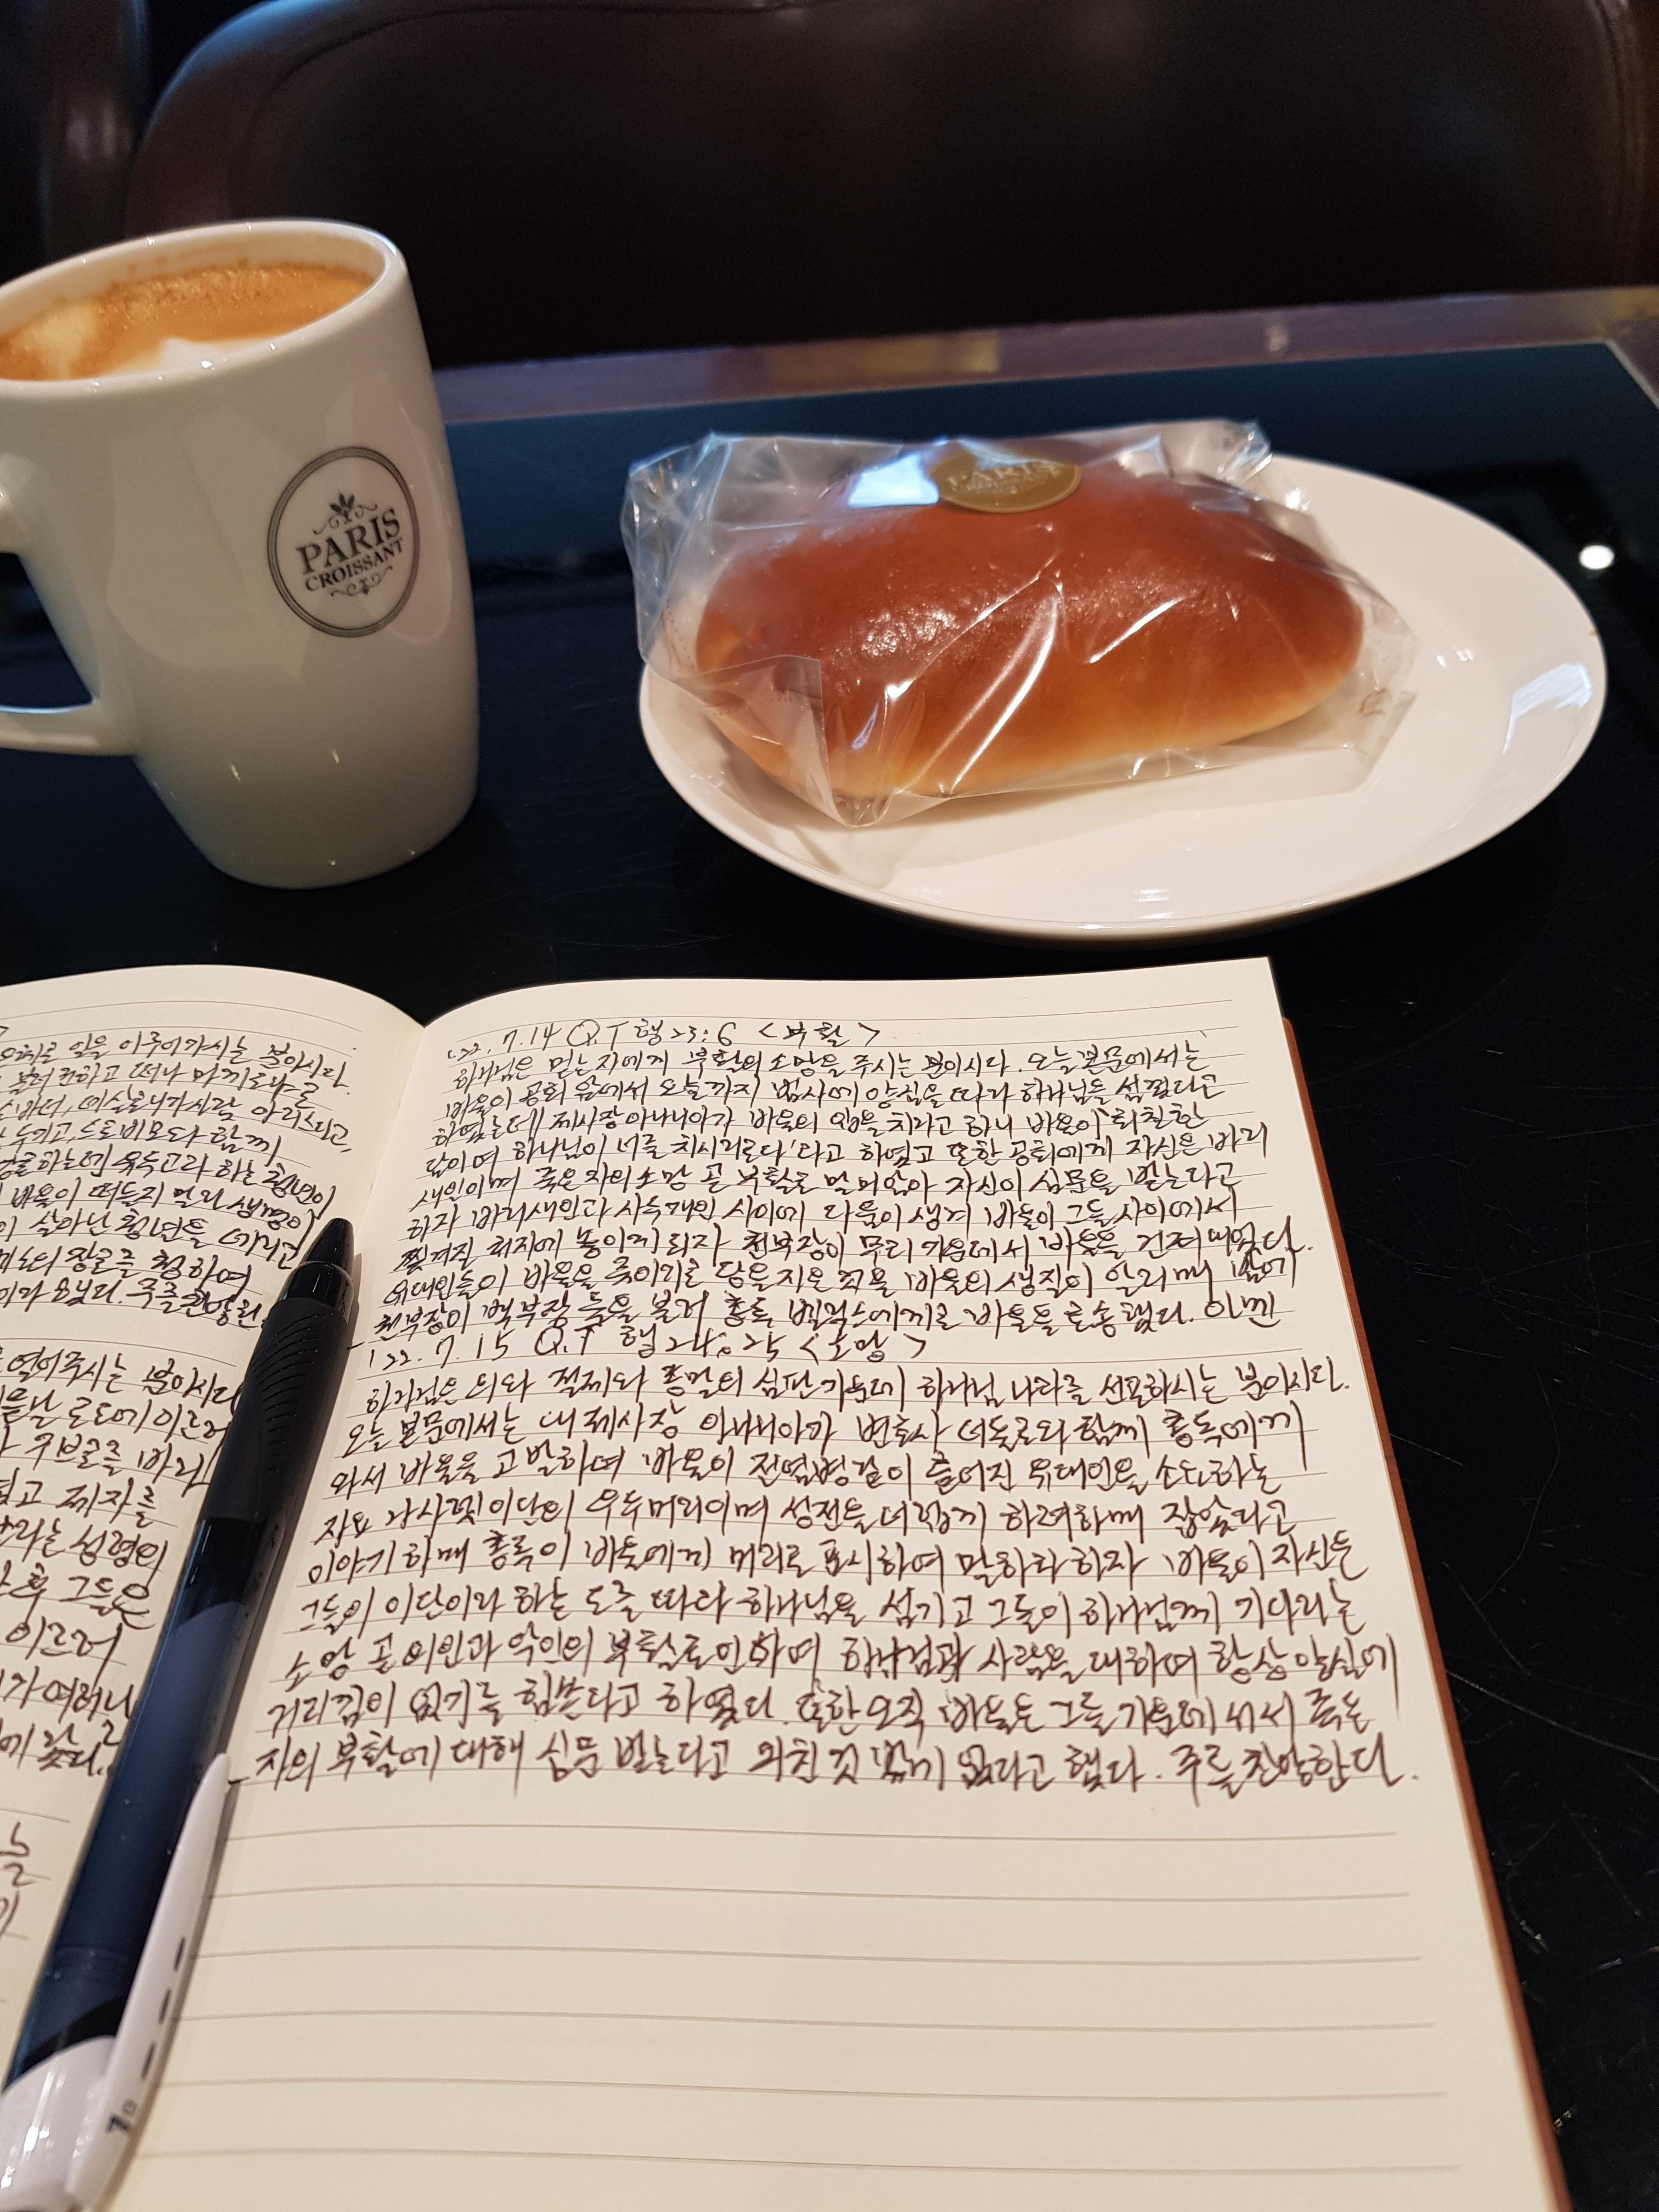 PARIS
CROISSANT
PARIS
일을 이루어가시는 분이시다
떠나 마게도냐를
데살로니가 사람 아리스다고,
두기고, 드로비모와 함께
유두고라 하는 청년이
바울이 떠들지 말라 생명이
살아난 청년을 데리고
장로를 청하여
주를 찬양한
열어주시는 분이시다
로도에 이르러
구브로를 바라
제자를
라는 성령의
후 그들은
이르러
가 여러 나
'22. 7. 14 Q.T 행 23:6 <부활>
하나님은 믿는 자에게 부활의 소망을 주시는 분이시다. 오늘 본문에서는
바울이 공회 앞에서 오늘까지 범사에 양심을 따라 하나님을 섬겼다고
하였는데 제사장 아나니아가 바울의 입을 치라고 하니 바울이 '회칠한
담이여 하나님이 너를 치시리로다'라고 하였고 또한 공회에게 자신은 바리
새인이며 죽은 자의 소망 곧 부활로 말미암아 자신이 심문을 받는다고
하자 바리새인과 사두개인 사이에 다툼이 생겨 바울이 그들 사이에서
찢겨질 처지에 놓이게 되자 천부장이 무리 가운데서 바울을 건져 내었다.
유대인들이 바울을 죽이기로 당을 지은 것을 바울의 생질이 알리매 밤에
천부장이 백부장 둘을 불러 총독 벨릭스에게로 바울을 호송했다. 아멘
'22. 7. 15 Q.T 행 24:25 <소망>
하나님은 의와 절제와 종말의 심판 가운데 하나님 나라를 선포하시는 분이시다.
오늘 본문에서는 대제사장 아나니아가 변호사 더둘로와 함께 총독에게
와서 바울을 고발하며 바울이 전염병 같이 흩어진 유대인을 소요하는
자요 나사렛 이단의 우두머리이며 성전을 더럽게 하려하매 잡았다고
이야기하매 총독이 바울에게 머리로 표시하여 말하라 하자 바울이 자신은
그들이 이단이라 하는 도를 따라 하나님을 섬기고 그들이 하나님께 기다리는
소망 곧 의인과 악인의 부활로 인하여 하나님과 사람을 대하여 항상 양심에
거리낌이 없기를 힘쓴다고 하였다. 또한 오직 바울은 그들 가운데 서서 죽은
자의 부활에 대해 심문 받는다고 외친 것 밖에 없다고 했다. 주를 찬양한다.